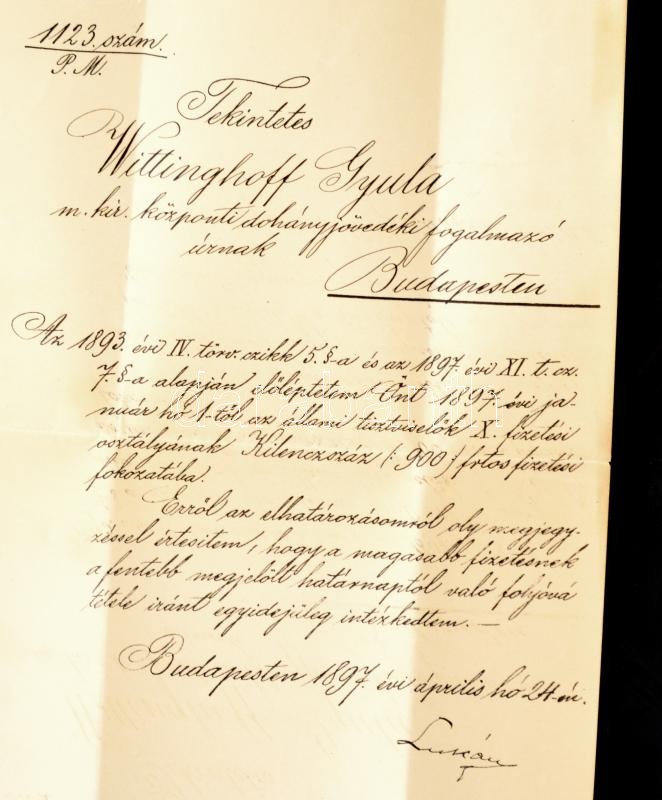 1123. szám.
P. M.
Tekintetes
Wittinghoff Gyula
m. kir. központi dohányjövedéki fogalmazó
úrnak
Budapesten
Az 1893. évi IV. törv. czikk 5. §-a és az 1897. évi XI. t. cz.
7. §-a alapján előléptetem Önt 1897. évi ja-
nuár hó 1-től az állami tisztviselők X. fizetési
osztályának Kilenczszáz (: 900 :) frtos fizetési
fokozatába.
Erről az elhatározásomról oly megjegy-
zéssel értesitem, hogy a magasabb fizetésnek
a fentebb megjelölt határnaptól való folyóvá
tétele iránt egyidejüleg intézkedtem. —
Budapesten 1897. évi április hó 24-én.
Lukács